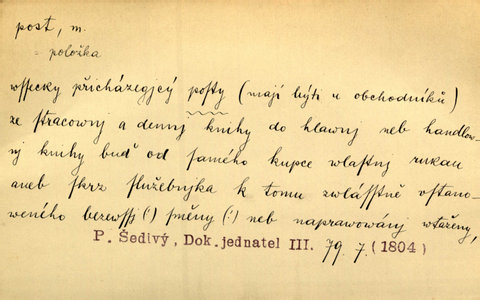 post, m.
= položka
wssecky přicházegjcý posty (mají býti u obchodníků)
ze stracownj a dennj knihy do hlawnj neb handlow-
nj knihy buď od samého kupce wlastnj rukau
aneb skrz služebnjka k tomu zwlásstně ustano-
weného bezewssj (!) směny (!) neb naprawowánj wtaženy,
P. Šedivý, Dok. jednatel III. 79. 7. (1804)